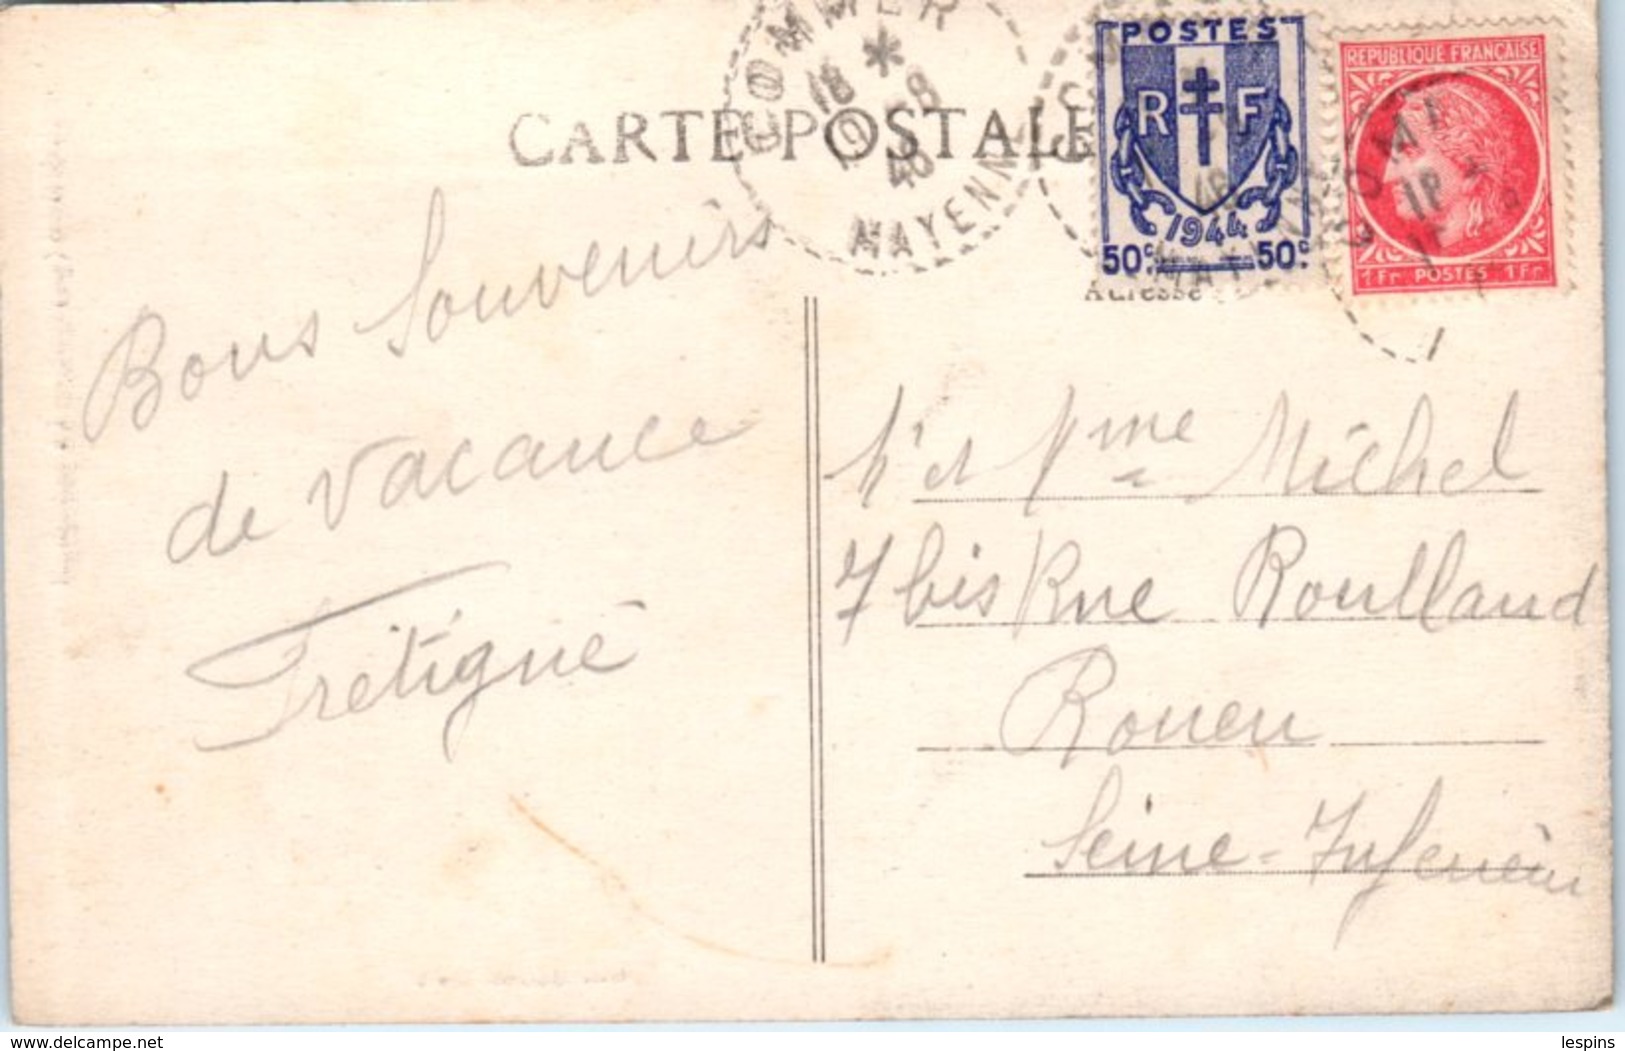 COMMER
18 *
19 -8
48
MAYENNE
CARTE POSTALE
POSTES
R F
1944
50c 50c
REPUBLIQUE FRANÇAISE
1Fr POSTES 1Fr
Adresse
Bons Souvenirs
de Vacance
Trétigné
Mr et Mme Michel
7 bis Rue Roulland
Rouen
Seine-Inferieur
lespins